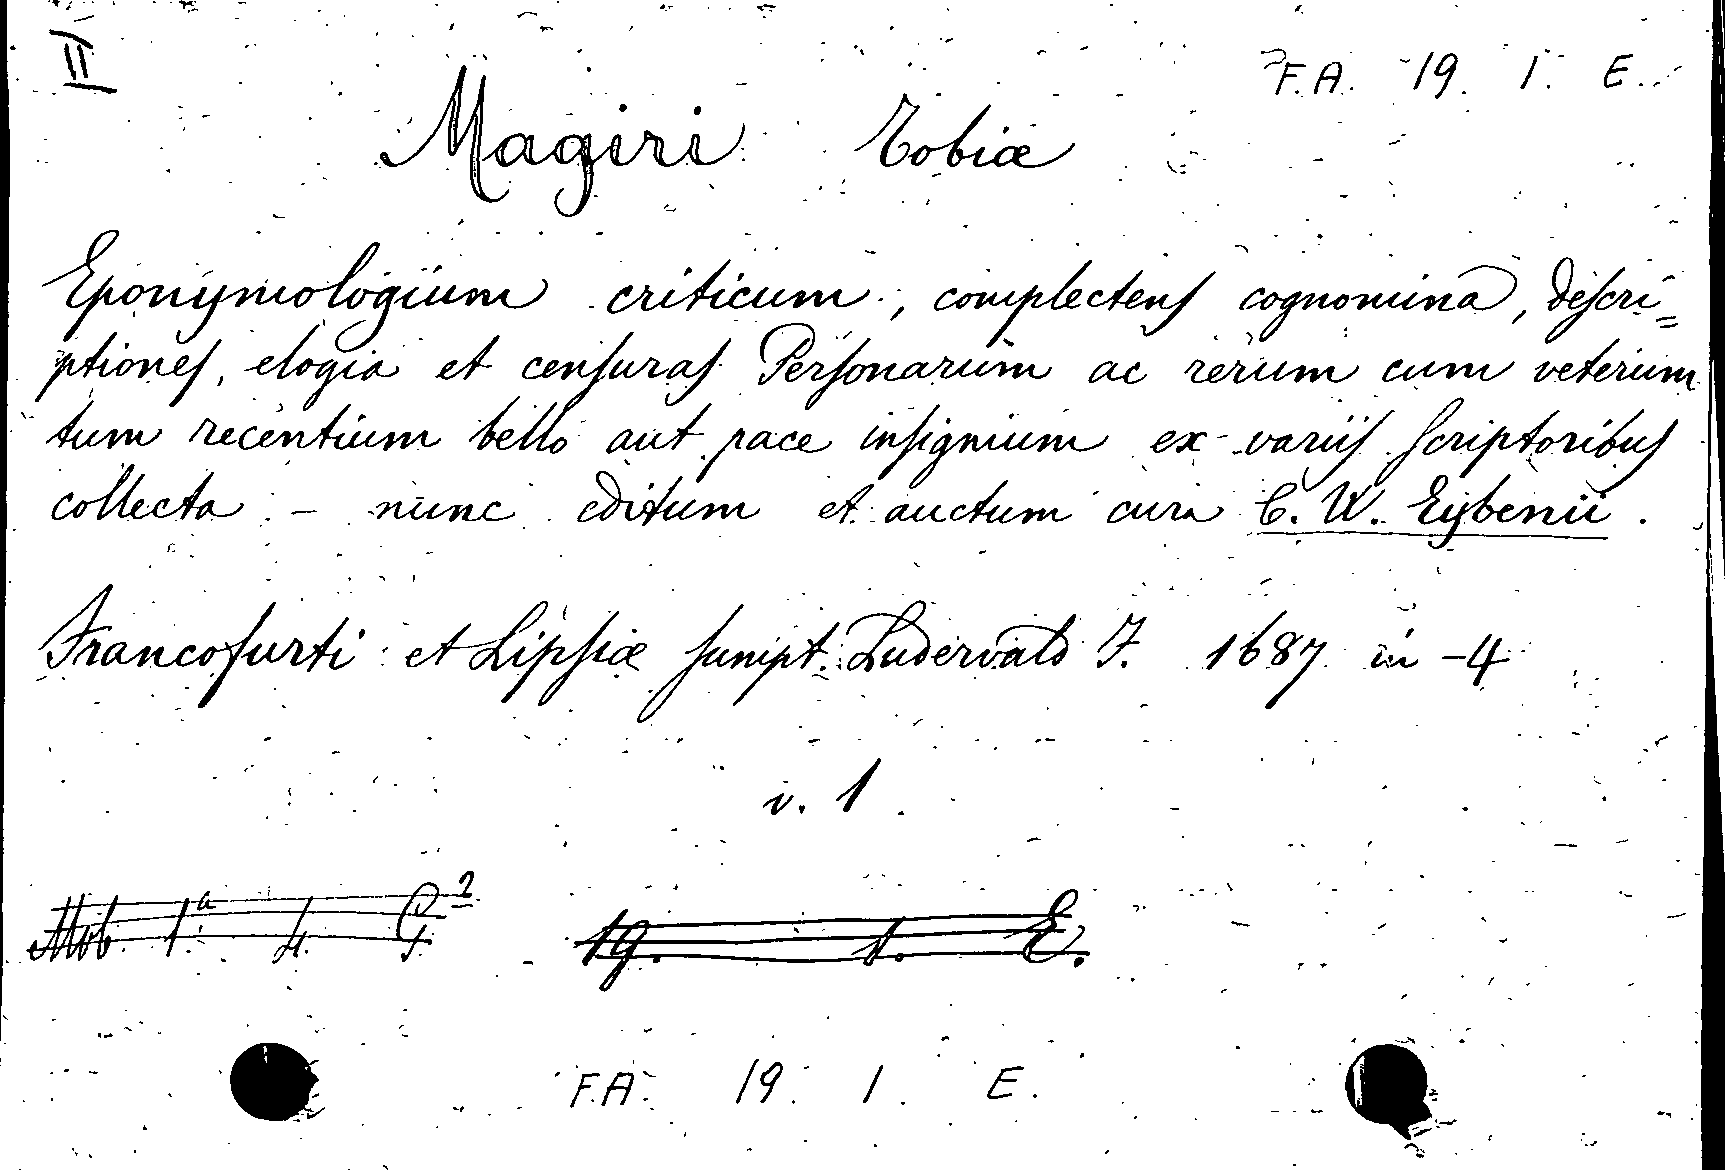 II
F.A. 19. 1. E.
Magiri Tobiæ
Eponymologium criticum, complectens cognomina, descri=
ptiones, elogia et censuras Personarum ac rerum cum veterum
tum recentium bello aut pace insignium ex variis scriptoribus
collecta - nunc editum et auctum cura C. W. Eybenii.
Francofurti et Lipsiæ sumpt. Ludervald J. 1687 in -4
v. 1
Mob 1.a 4. 2
19. 1. E.
F.A. 19. 1. E.